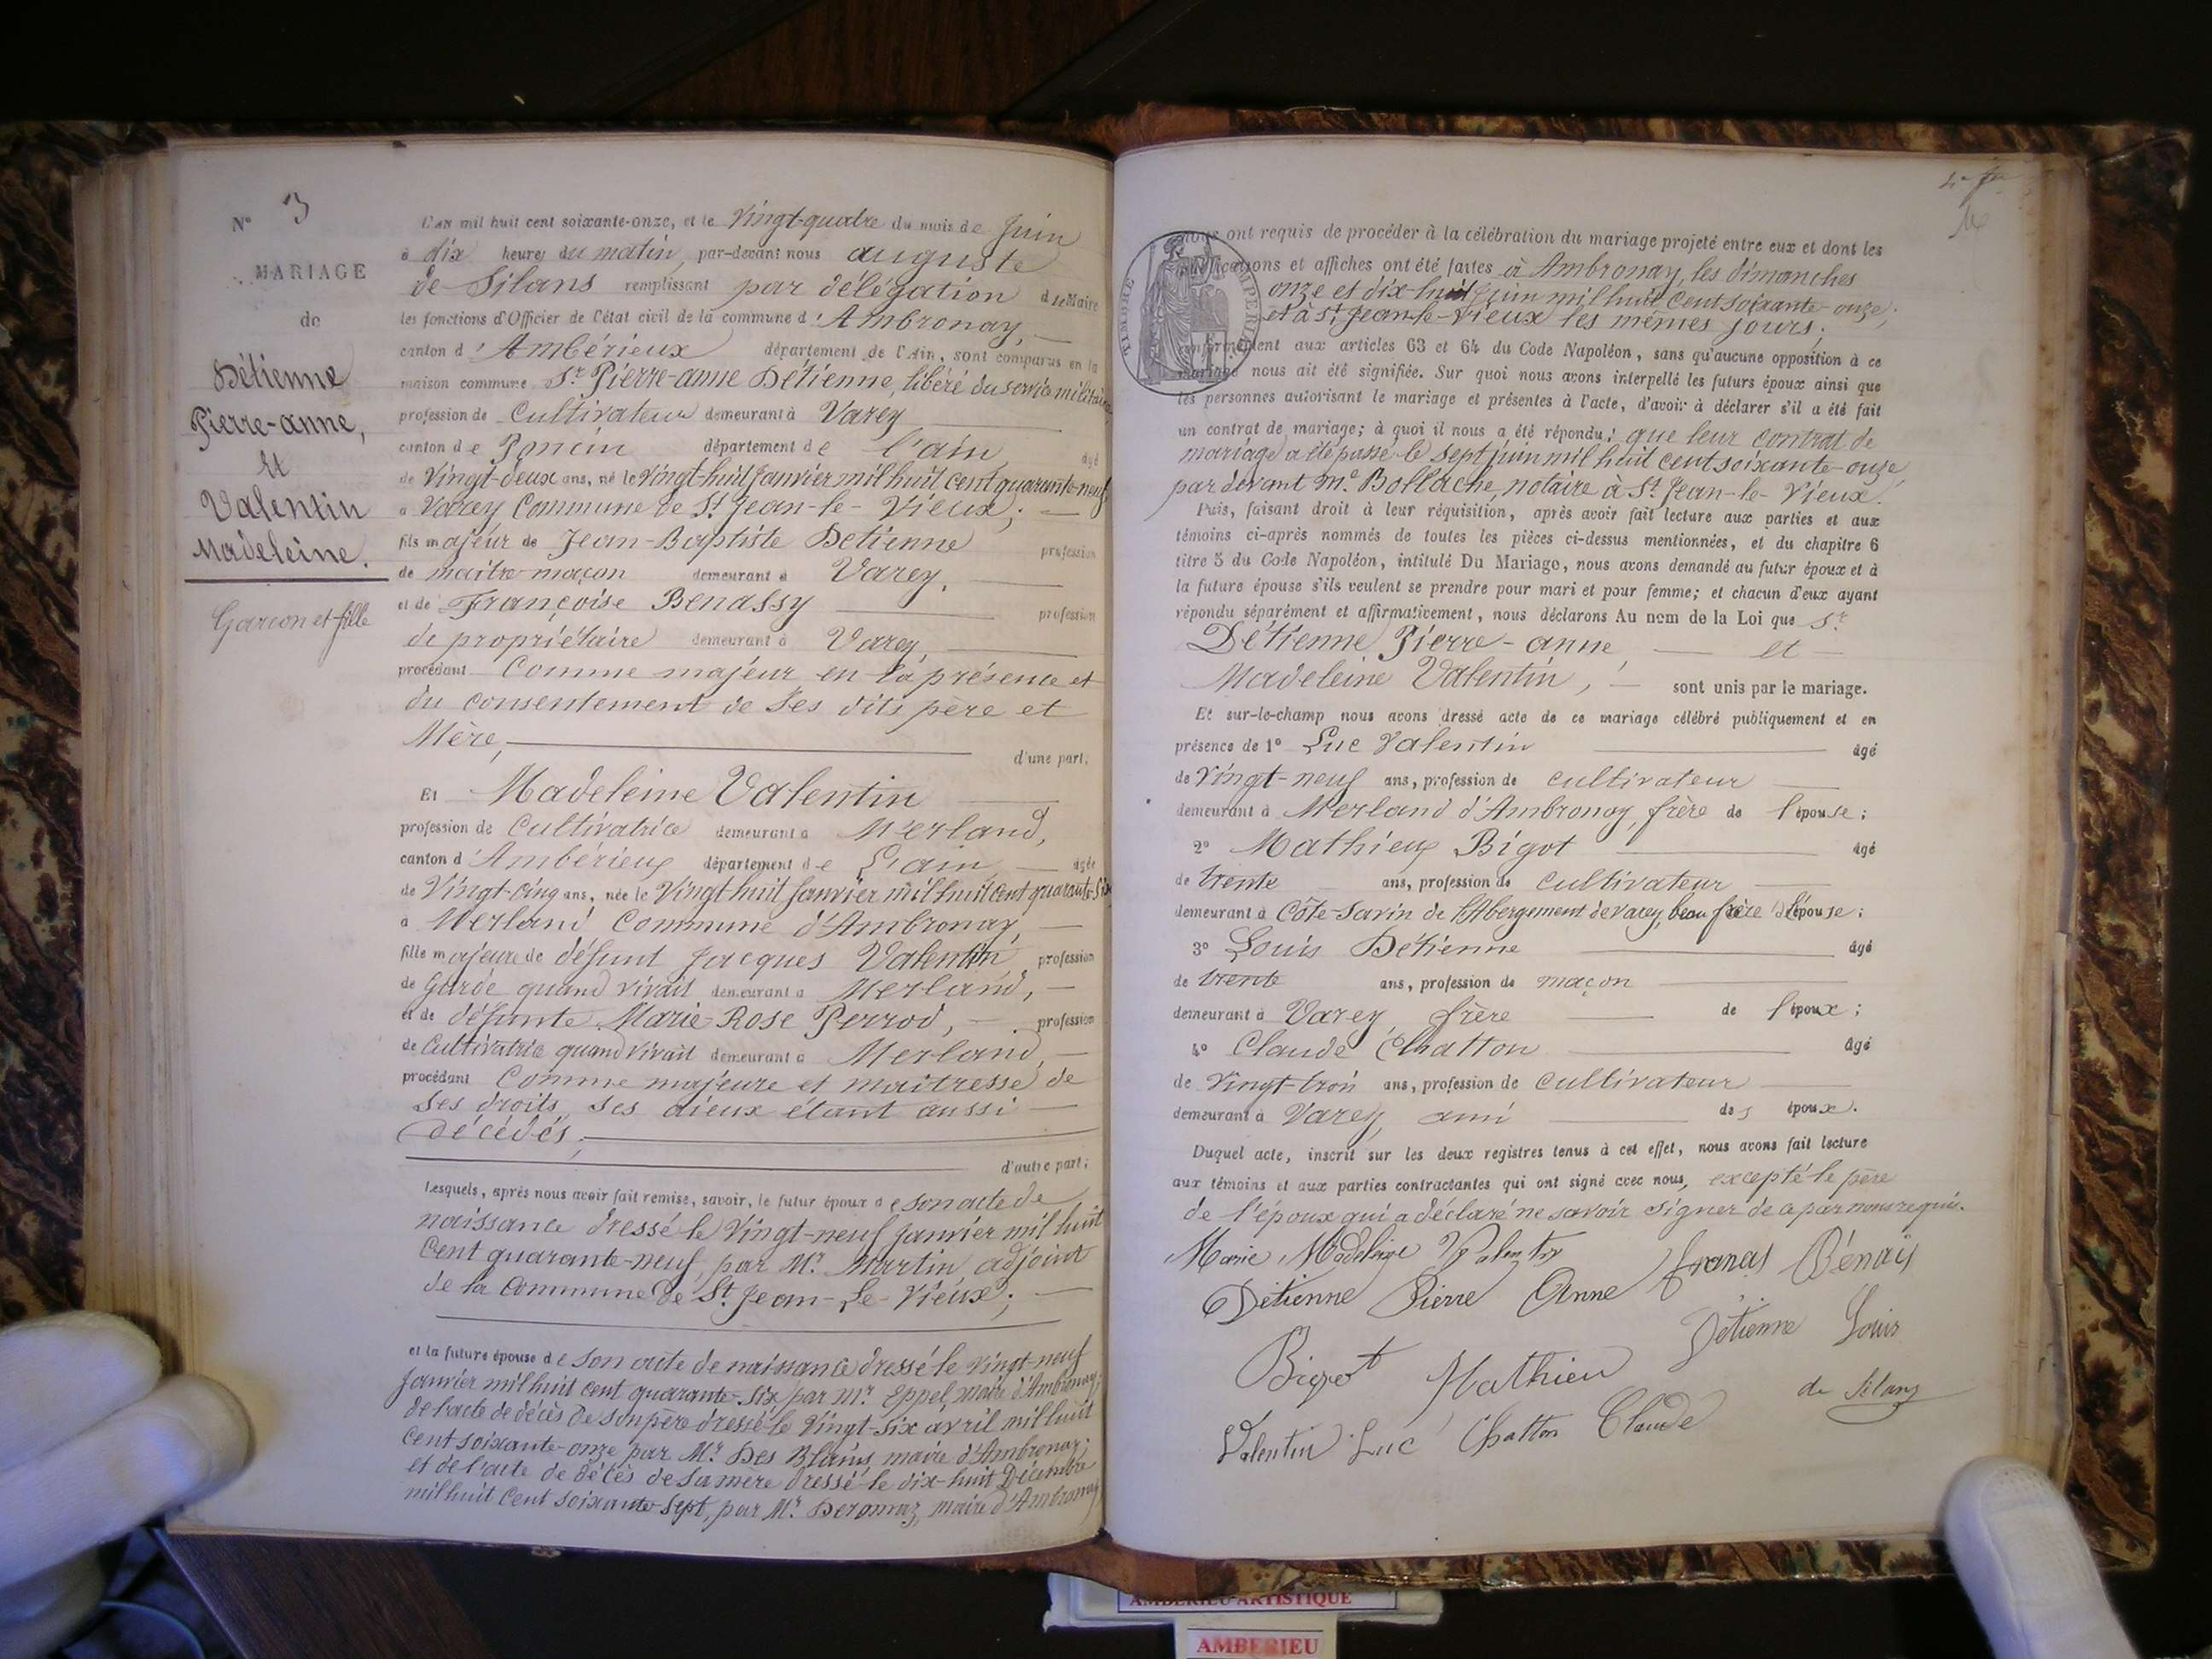 N° 3
MARIAGE
de
Détienne
Pierre-anne,
et
Valentin
Madeleine.
Garçon et fille
L'AN mil huit cent soixante-onze, et le Vingt-quatre du mois de Juin
à dix heures du matin, par-devant nous auguste
de Silans remplissant par délégation du Maire
les fonctions d'Officier de l'état civil de la commune d'Ambronay,
canton d'Ambérieux département de l'Ain, sont comparus en la
maison commune Sr. Pierre-anne Détienne, libéré du service militaire
profession de Cultivateur demeurant à Varey
canton de Poncin département de l'ain âgé
de Vingt-deux ans, né le Vingt-huit Janvier mil huit cent quarante-neuf
à Varey Commune de St. Jean-le-Vieux;
fils majeur de Jean-Baptiste Detienne profession
de maître-maçon demeurant à Varey,
et de Françoise Benassy profession
de propriétaire demeurant à Varey,
procédant Comme majeur en la présence et
du consentement de ses dits père et
Mère, d'une part;
Et Madeleine Valentin
profession de Cultivatrice demeurant à Merland,
canton d'Ambérieux département de L'ain âgée
de Vingt-cinq ans, née le Vingt huit Janvier mil huit cent quarante-six
à Merland Commune d'Ambronay,
fille majeure de défunt Jacques Valentin profession
de Garde quand vivait demeurant à Merland,
et de défunte Marie-Rose Perrod, profession
de Cultivatrice quand vivait demeurant à Merland,
procédant Comme majeure et maîtresse de
ses droits, ses aieux étant aussi
décédés,
d'autre part;
Lesquels, après nous avoir fait remise, savoir, le futur époux de son acte de
naissance dressé le Vingt-neuf Janvier mil huit
Cent quarante-neuf, par Mr. Martin adjoint
de la Commune de St. Jean-Le-Vieux;
et la future épouse de son acte de naissance dressé le vingt-neuf
Janvier mil huit cent quarante-six par Mr. Eppel, maire d'Ambronay;
de l'acte de décès de son père dressé le Vingt-six avril mil huit
Cent soixante-onze par Mr. Des Blains, maire d'Ambronay;
et de l'acte de décès de sa mère dressé le dix-huit Décembre
mil huit Cent soixante-sept, par Mr. maire d'Ambronay
TIMBRE IMPERIAL
nous ont requis de procéder à la célébration du mariage projeté entre eux et dont les
publications et affiches ont été faites à Ambronay, les dimanches
onze et dix-huit juin mil huit cent soixante-onze;
et à St. Jean-le-Vieux les mêmes jours;
conformément aux articles 63 et 64 du Code Napoléon, sans qu'aucune opposition à ce
mariage nous ait été signifiée. Sur quoi nous avons interpellé les futurs époux ainsi que
les personnes autorisant le mariage et présentes à l'acte, d'avoir à déclarer s'il a été fait
un contrat de mariage; à quoi il nous a été répondu: que leur contrat de
mariage a été passé le sept juin mil huit cent soixante-onze
par devant Me. Bollache, notaire à St. Jean-le-Vieux.
Puis, faisant droit à leur réquisition, après avoir fait lecture aux parties et aux
témoins ci-après nommés de toutes les pièces ci-dessus mentionnées, et du chapitre 6
titre 5 du Code Napoléon, intitulé Du Mariage, nous avons demandé au futur époux et à
la future épouse s'ils veulent se prendre pour mari et pour femme; et chacun d'eux ayant
répondu séparément et affirmativement, nous déclarons Au nom de la Loi que Sr.
Détienne Pierre-anne, et
Madeleine Valentin, sont unis par le mariage.
Et sur-le-champ nous avons dressé acte de ce mariage célébré publiquement et en
présence de 1° Luc Valentin âgé
de Vingt-neuf ans, profession de cultivateur
demeurant à Merland d'Ambronay, frère de l'épouse;
2° Mathieu Bigot âgé
de trente ans, profession de cultivateur
demeurant à Côte-Savin de l'Abergement de varey, beau frère de l'épouse;
3° Louis Détienne âgé
de trente ans, profession de maçon
demeurant à Varey, frère de l'époux;
4° Claude Chatton âgé
de Vingt-trois ans, profession de cultivateur
demeurant à Varey, ami des époux.
Duquel acte, inscrit sur les deux registres tenus à cet effet, nous avons fait lecture
aux témoins et aux parties contractantes qui ont signé avec nous, excepté le père
de l'époux qui a déclaré ne savoir signer de ce par nous requis.
Marie Madeleine Valentin
Détienne Pierre Anne
Bigot Mathieu Détienne Louis
de Silans
Valentin Luc Chatton Claude
AMBERIEU-ARTISTIQUE
AMBERIEU